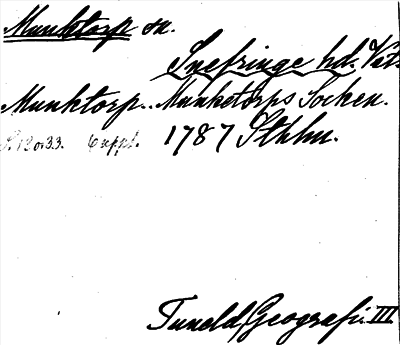 Munktorp sn.
Snefringe hd. Väst
Munktorp.. Munketorps Socken.
S. 12 o. 33. 6 uppl. 1787 Sthlm.
Tuneld, Geografi. III